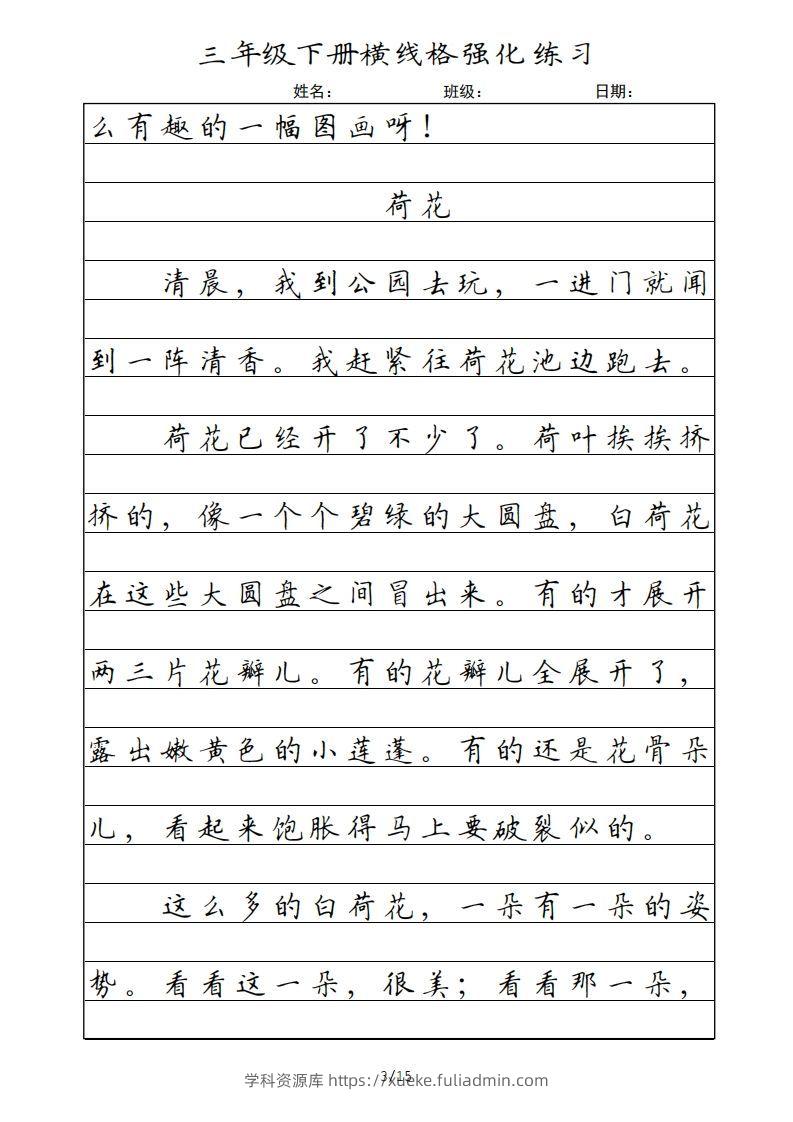 三年级下册横线格强化练习
姓名： 班级： 日期：
么有趣的一幅图画呀！
荷花
清晨，我到公园去玩，一进门就闻
到一阵清香。我赶紧往荷花池边跑去。
荷花已经开了不少了。荷叶挨挨挤
挤的，像一个个碧绿的大圆盘，白荷花
在这些大圆盘之间冒出来。有的才展开
两三片花瓣儿。有的花瓣儿全展开了，
露出嫩黄色的小莲蓬。有的还是花骨朵
儿，看起来饱胀得马上要破裂似的。
这么多的白荷花，一朵有一朵的姿
势。看看这一朵，很美；看看那一朵，
3/15
学科资源库 https://xueke.fuliadmin.com